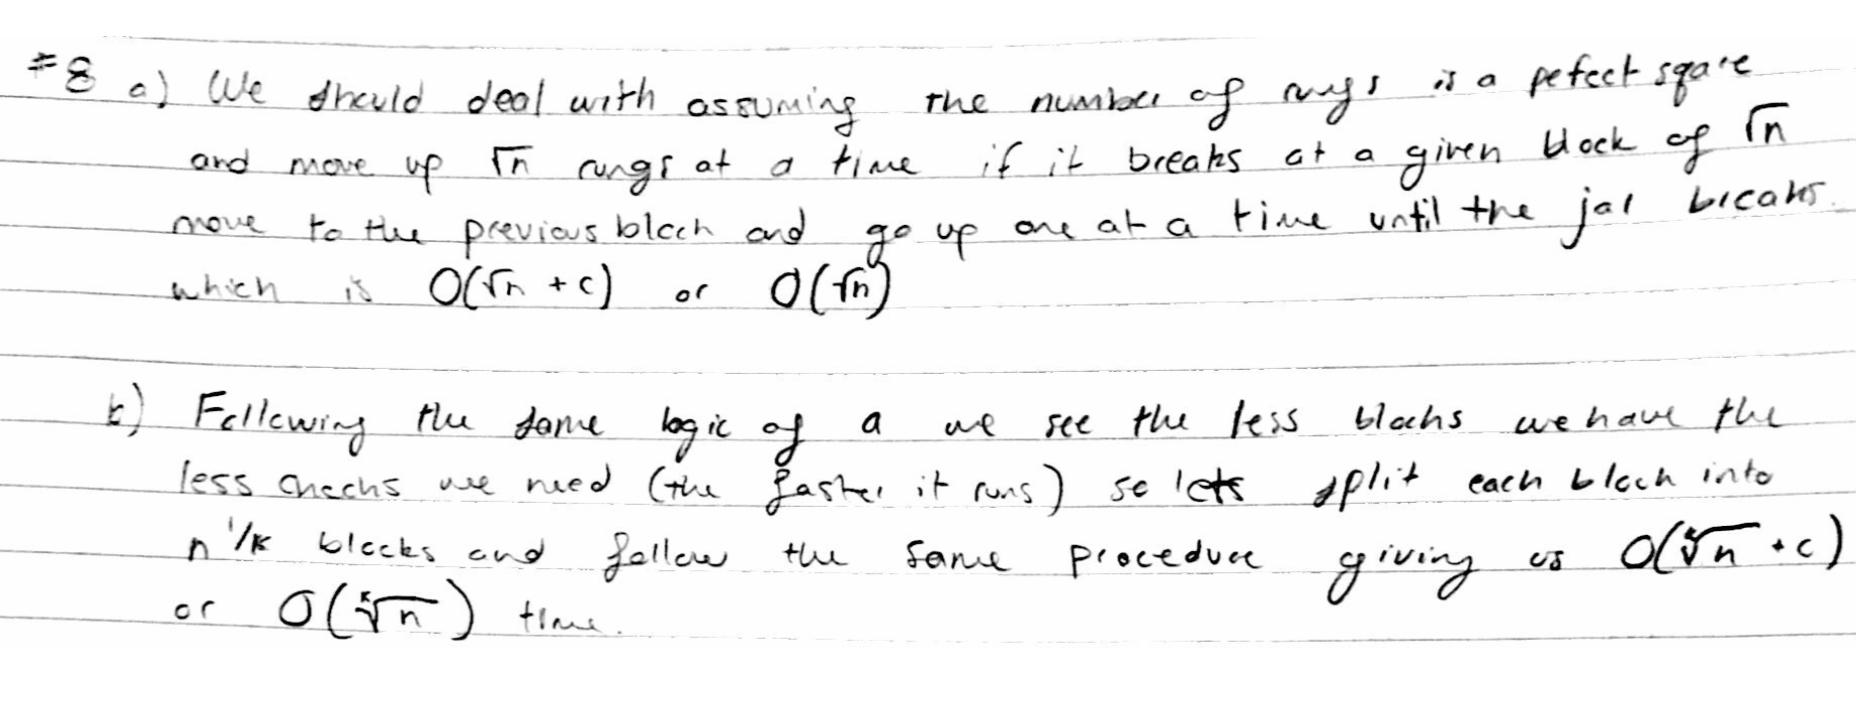 #8 a) We should deal with assuming the number of rungs is a pefect sqare
and move up √n rungs at a time if it breaks at a given block of √n
move to the previous block and go up one at a time until the jar breaks.
which is O(√n + c) or O(√n)
b) Following the same logic of a we see the less blocks we have the
less checks we need (the faster it runs) so lets split each block into
n^1/k blocks and follow the same procedure giving us O(ᵏ√n + c)
or O(ᵏ√n) time.